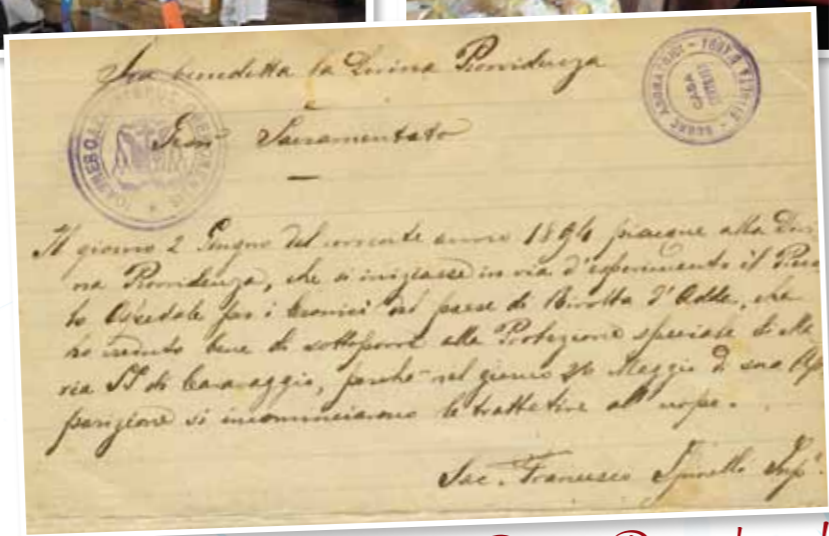 Sia benedetta la Divina Provvidenza
e
Gesù Sacramentato
Il giorno 2 Giugno del corrente anno 1894 piacque alla Divi
na Provvidenza, che si iniziasse in via d'esperimento il Picco
lo Ospedale per i Cronici del paese di Rivolta d'Adda, che
ho creduto bene di sottoporre alla Protezione speciale di Ma
ria SS di Caravaggio, perché nel giorno 26 Maggio di sua Ap
parizione si incominciarono le trattative all'uopo.
Sac. Francesco Spinelli Sup.
CASA
SUORE ADORATRICI - RIVOLTA D'ADDA